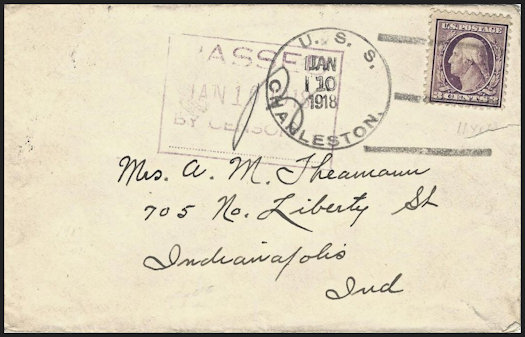 PASSED
JAN 10
BY CENSOR
U. S. S.
JAN
10
1918
CHARLESTON.
U.S. POSTAGE
3 CENTS 3
Mrs. A. M. Theamann
705 No. Liberty St
Indianapolis
Ind